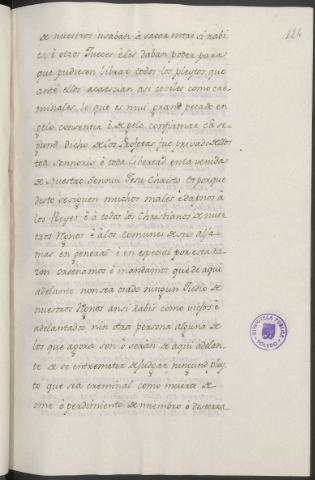 124
de nuestros usaban à sacar entre si rabi
è otros Jueces è les daban poder para
que pudiesen librar todos los pleytos que
ante ellos acaecian, asi ceviles como cri
minales, lo que es mui grand pecado en
gelo consentir è de gelo confirmar cà se
gund dicho de los Profetas fue privado
toda Senhoria è toda libertad en la venida
de Nuestro Sennor Jesu Christo. Et porque
desto se siguen muchos males è dapnos à
los Reyes è à todos los Christianos de nues
tros Regnos è à los comunes de sus alja
mas en general è en especial por esta ra
zon ordenamos è mandamos que de aqui
adelante non sea osado ningun Judio de
nuestros Regnos ansi rabis como viejos è
adelantados nin otra persona alguna de
los que agora son ò seràn de aqui adelan
te de se entremeter de judgar ningund pley
to que sea creminal como muerte de
ome ò perdimiento de miembro ò desterra
BIBLIOTECA PUBLICA
TOLEDO